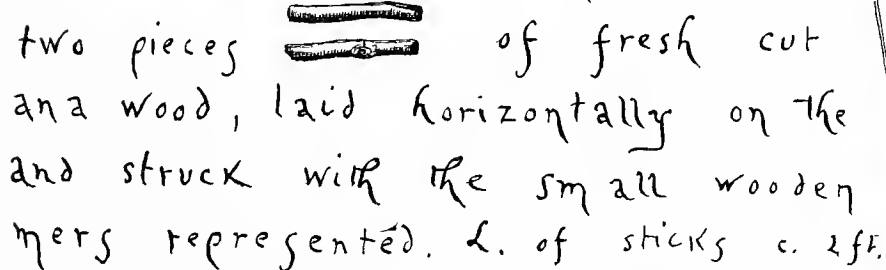 two pieces of fresh cut
ana wood, laid horizontally on the
and struck with the small wooden
mers represented. L. of sticks c. 2 ft.